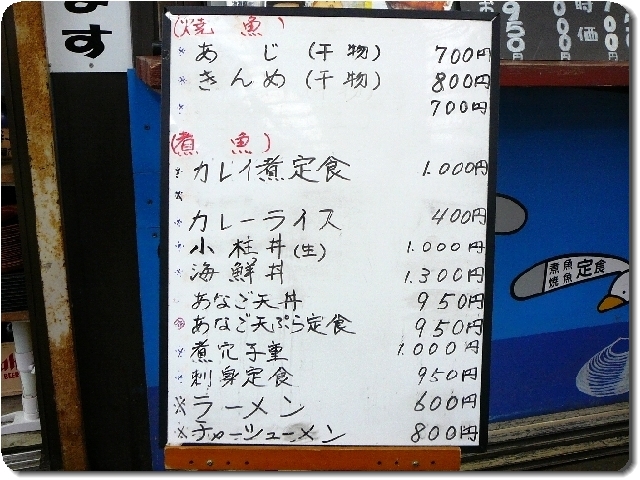 ます
お 950
00
時価
500
(焼魚)
※ あじ(干物) 700円
※ きんめ(干物) 800円
※ 700円
(煮魚)
※ カレイ煮定食 1.000円
※
※ カレーライス 400円
※ 小柱丼(生) 1.000円
※ 海鮮丼 1.300円
あなご天丼 950円
あなご天ぷら定食 950円
※ 煮穴子重 1.000円
※ 刺身定食 950円
※ ラーメン 600円
※ チャーシューメン 800円
煮魚
焼魚 定食